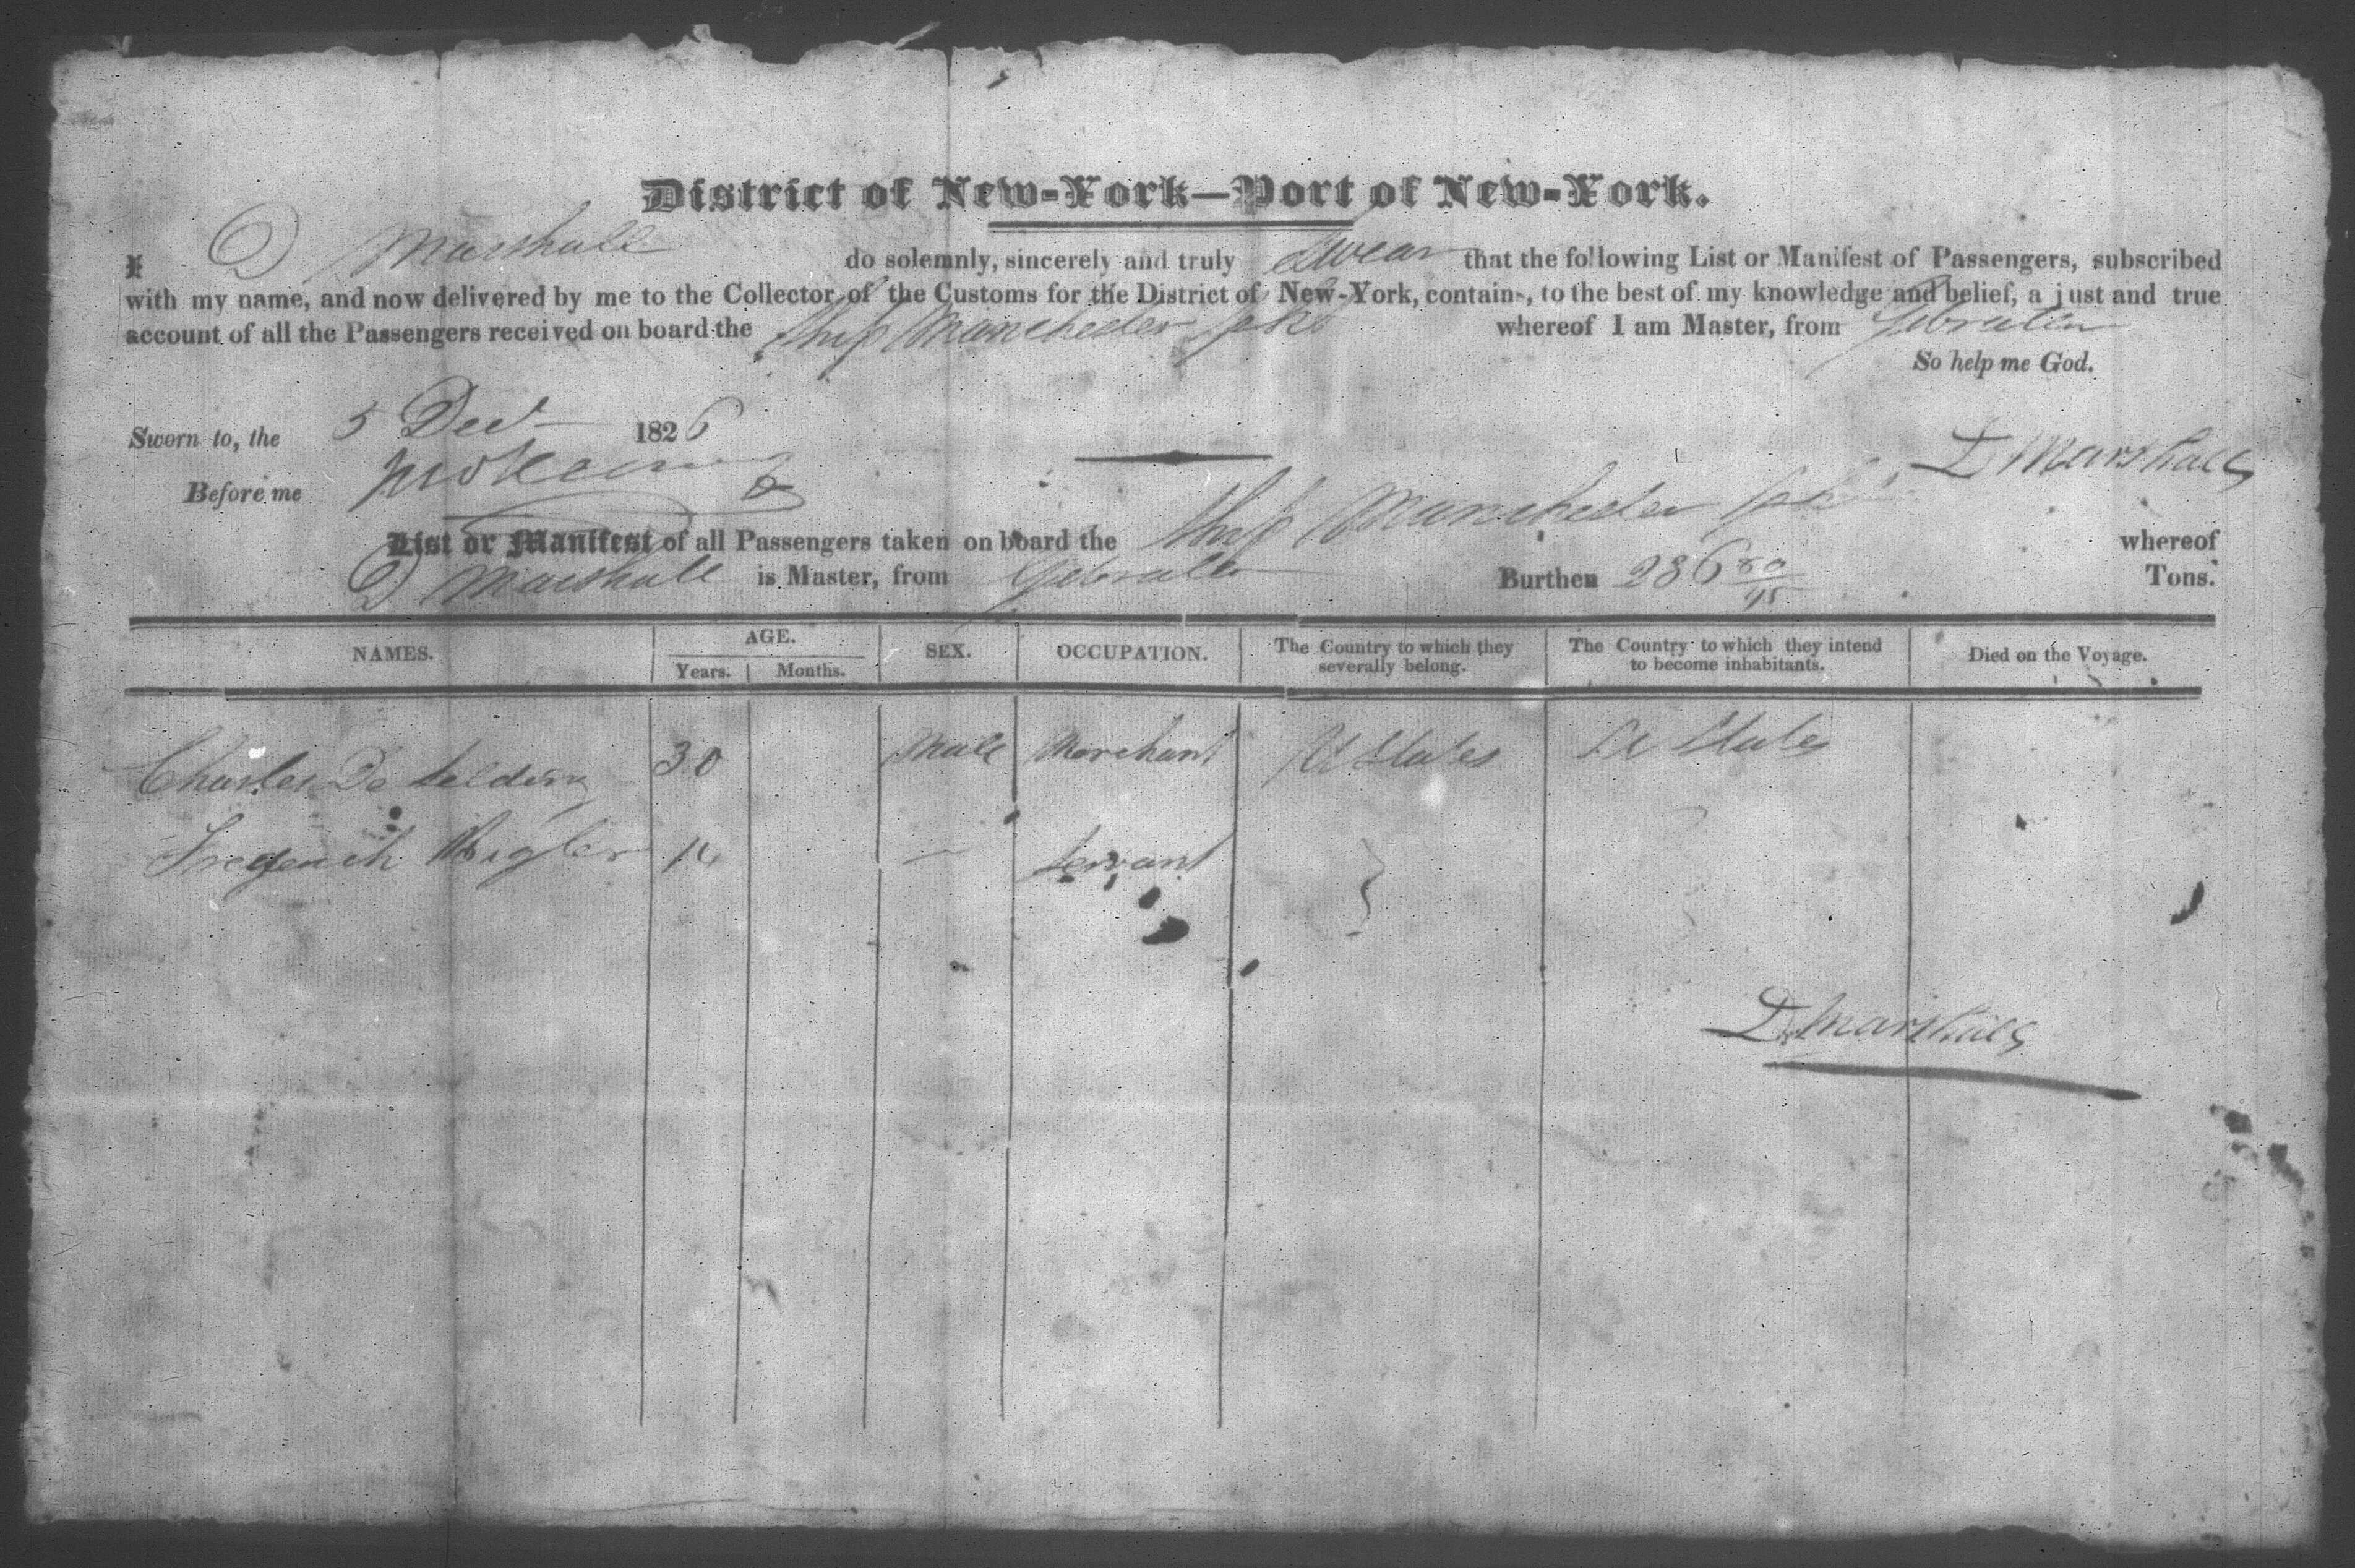 District of New-York—Port of New-York.
I D Marshall do solemnly, sincerely and truly swear that the following List or Manifest of Passengers, subscribed
with my name, and now delivered by me to the Collector of the Customs for the District of New-York, contains, to the best of my knowledge and belief, a just and true
account of all the Passengers received on board the Ship Manchester whereof I am Master, from Gibralter
So help me God.
Sworn to, the 5 Dec 1826
D Marshall
Before me
List or Manifest of all Passengers taken on board the Ship Manchester whereof
D Marshall is Master, from Gibralter Burthen 286 80/95 Tons.
NAMES. AGE. SEX. OCCUPATION. The Country to which they severally belong. The Country to which they intend to become inhabitants. Died on the Voyage.
Years. Months.
Charles De Selding 30 Male Merchant U States U States
Frederick 14 — Servant }
D Marshall